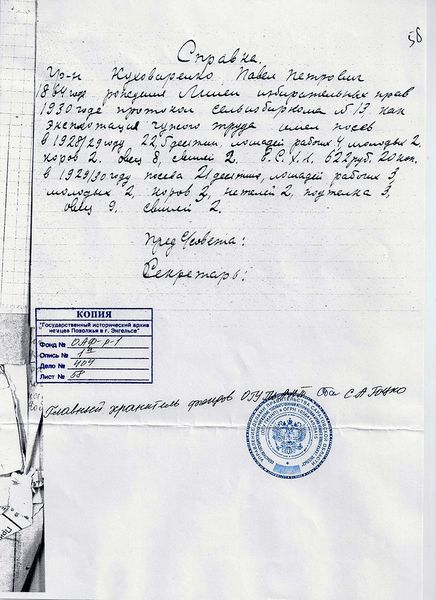 58
Справка.
Гр-н Куховаренко Павел Петрович
1884 год рождения Лишен избирательных прав
1930 годе протокол сельизбиркома №13 как
Экспл​отация чужого труда имел посев
в 1928/29 году 22,5 десятин, лошадей рабочих 4 молодых 2,
коров 2. овец 8, свиней 2, Е.С.Х.Н. 622 руб. 20 коп.
в 1929/30 году посева 21 десятин, лошадей рабочих 3
молодых 2, коров 2, нетелей 2, подтелка 3,
овец 9, свиней 2.
Пред С/совета:
Секретарь:
КОПИЯ
"Государственный исторический архив
немцев Поволжья в г. Энгельсе"
Фонд № ОАФ-р-1
Опись № 1"
Дело № 404
Лист № 58
Главный хранитель фондов С.А.